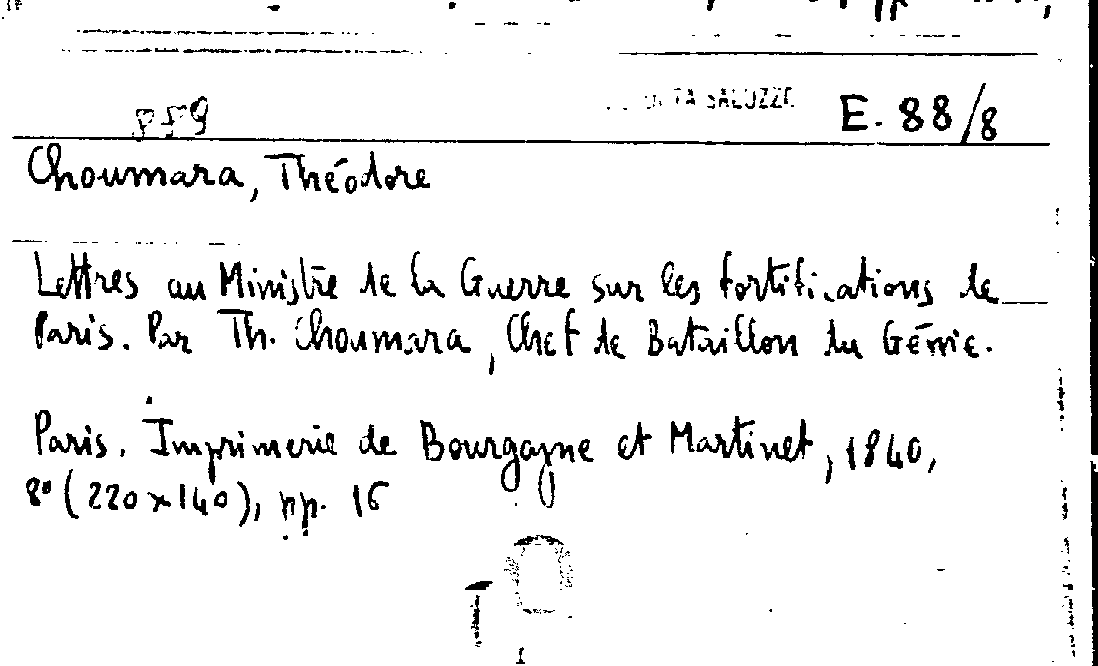 SALUZZO E. 88/8
Choumara, Théodore
Lettres au Ministre de la Guerre sur les fortifications de
Paris. Par Th. Choumara, Chef de Bataillon du Génie.
Paris. Imprimerie de Bourgogne et Martinet, 1840,
8º (220 x 140), pp. 16